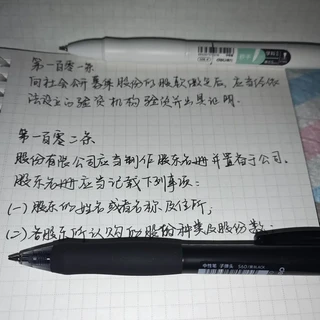 第一百零一条
向社会公开募集股份的股款缴足后，应当经依
法设立的验资机构验资并出具证明。
第一百零二条
股份有限公司应当制作股东名册并置备于公司。
股东名册应当记载下列事项：
(一)股东的姓名或者名称及住所；
(二)各股东所认购的股份种类及股份数；